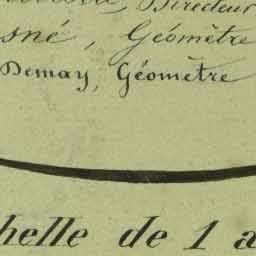 Directeur
sné, Géomètre
Demay, Géomètre
helle de 1 a